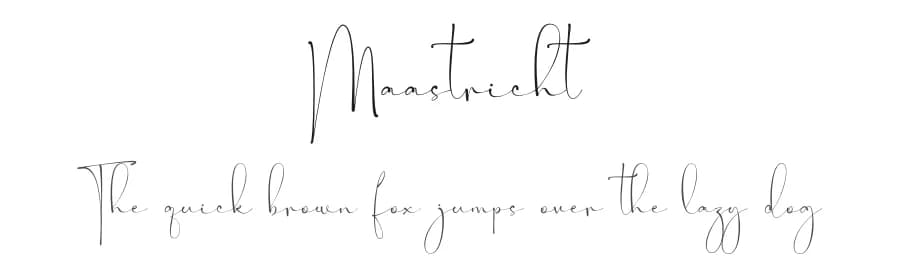 Maastricht
The quick brown fox jumps over the lazy dog